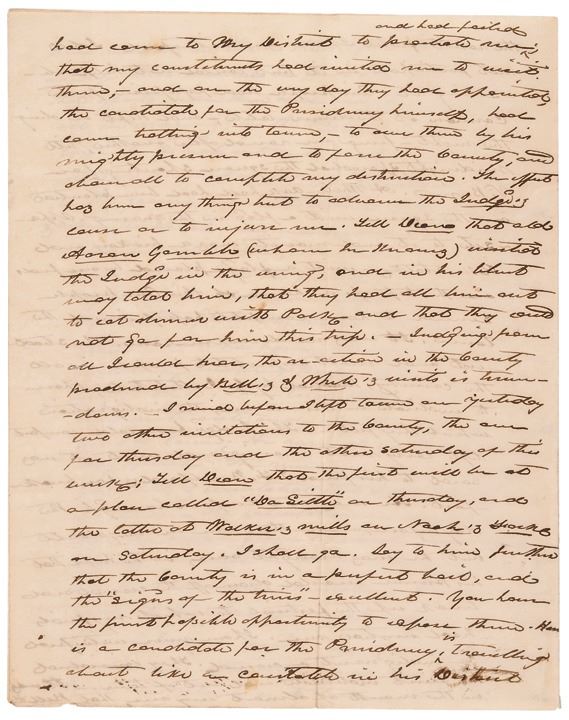 and had failed
had come to my District to prostrate me;
that my constituents had invited me to visit
them,– and on the very day they had appointed
the candidate for the Presidency himself, had
come trotting into town,– to awe them by his
mighty presence and to pass the County, and
above all to complete my destruction. The effect
has been any thing but to advance the Judge's
cause or to injure me. Tell Dean that old
Aaron Gamble (whom he knows) visited
the Judge in the evening, and in his blunt
way told him, that they had all been out
to eat dinner with Polk and that they could
not go for him this trip. – Judging from
all I could hear, the reaction in the County
produced by Bell's & White's visits is tremen-
-dous. I received before I left town on yesterday
two other invitations to the County, the one
for thursday and the other saturday of this
week; Tell Dean that the first will be at
a place called on thursday, and
the latter at Walker's mills on Nash's
on Saturday. I shall go. Say to him further
that the County is in a perfect boil, and
the "signs of the times" – excellent. You have
the finest possible opportunity to expose them. Here
is a candidate for the Presidency, travelling
about like a constable in his District